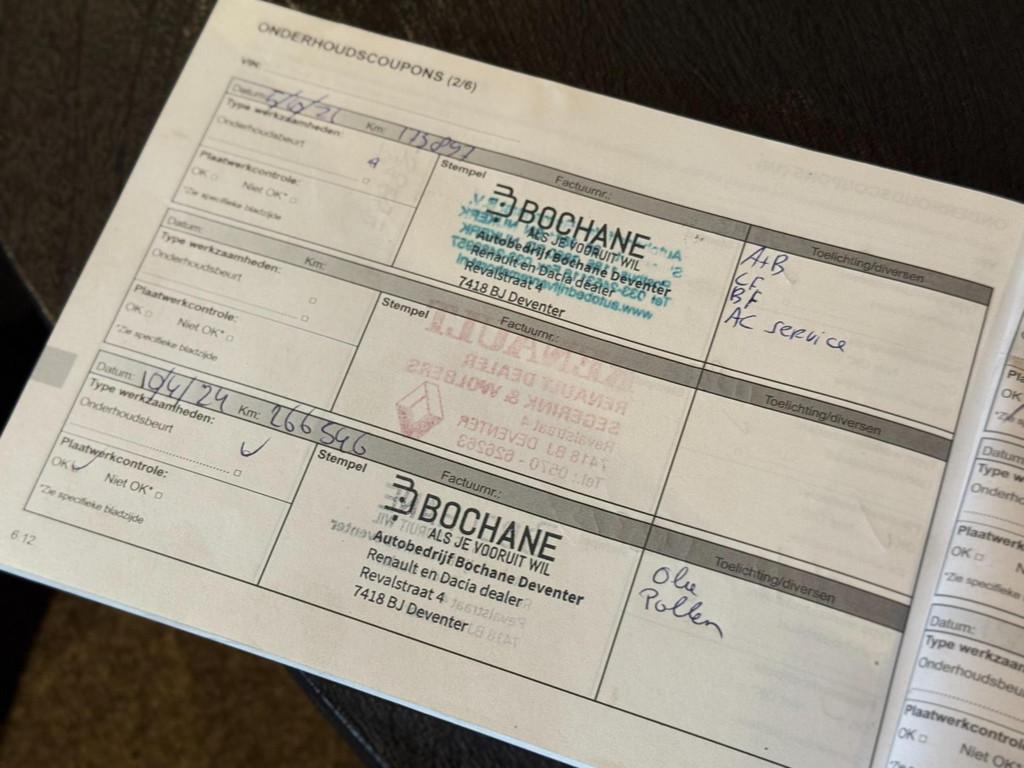 ONDERHOUDSCOUPONS (2/6)
VIN:
Datum: Km: 173892
Type werkzaamheden:
Onderhoudsbeurt
A
Plaatwerkcontrole:
OK Niet OK*
*Zie specifieke bladzijde
Stempel Factuurnr.:
BOCHANE
ALS JE VOORUIT WIL
Autobedrijf Bochane Deventer
Renault en Dacia dealer
Revalstraat 4
7418 BJ Deventer
Toelichting/diversen
A+B
CF
BF
AC service
Datum: Km:
Type werkzaamheden:
Onderhoudsbeurt
Plaatwerkcontrole:
OK Niet OK*
*Zie specifieke bladzijde
Stempel Factuurnr.:
RENAULT
RENAULT DEALER
SEGERINK & WOLBERS
Revalstraat 4
7418 BJ DEVENTER
Tel.: 0570 - 626263
Toelichting/diversen
Datum: 10/4/24 Km: 266546
Type werkzaamheden:
Onderhoudsbeurt
Plaatwerkcontrole:
OK Niet OK*
*Zie specifieke bladzijde
Stempel Factuurnr.:
BOCHANE
ALS JE VOORUIT WIL
Autobedrijf Bochane Deventer
Renault en Dacia dealer
Revalstraat 4
7418 BJ Deventer
Toelichting/diversen
Olie
Pollen
6.12
OK
Datum:
Type w
Onderho
Plaatwerk
OK
*Zie specifie
Datum:
Type werkzaam
Onderhoudsbeu
Plaatwerkcontrol
OK Niet OK